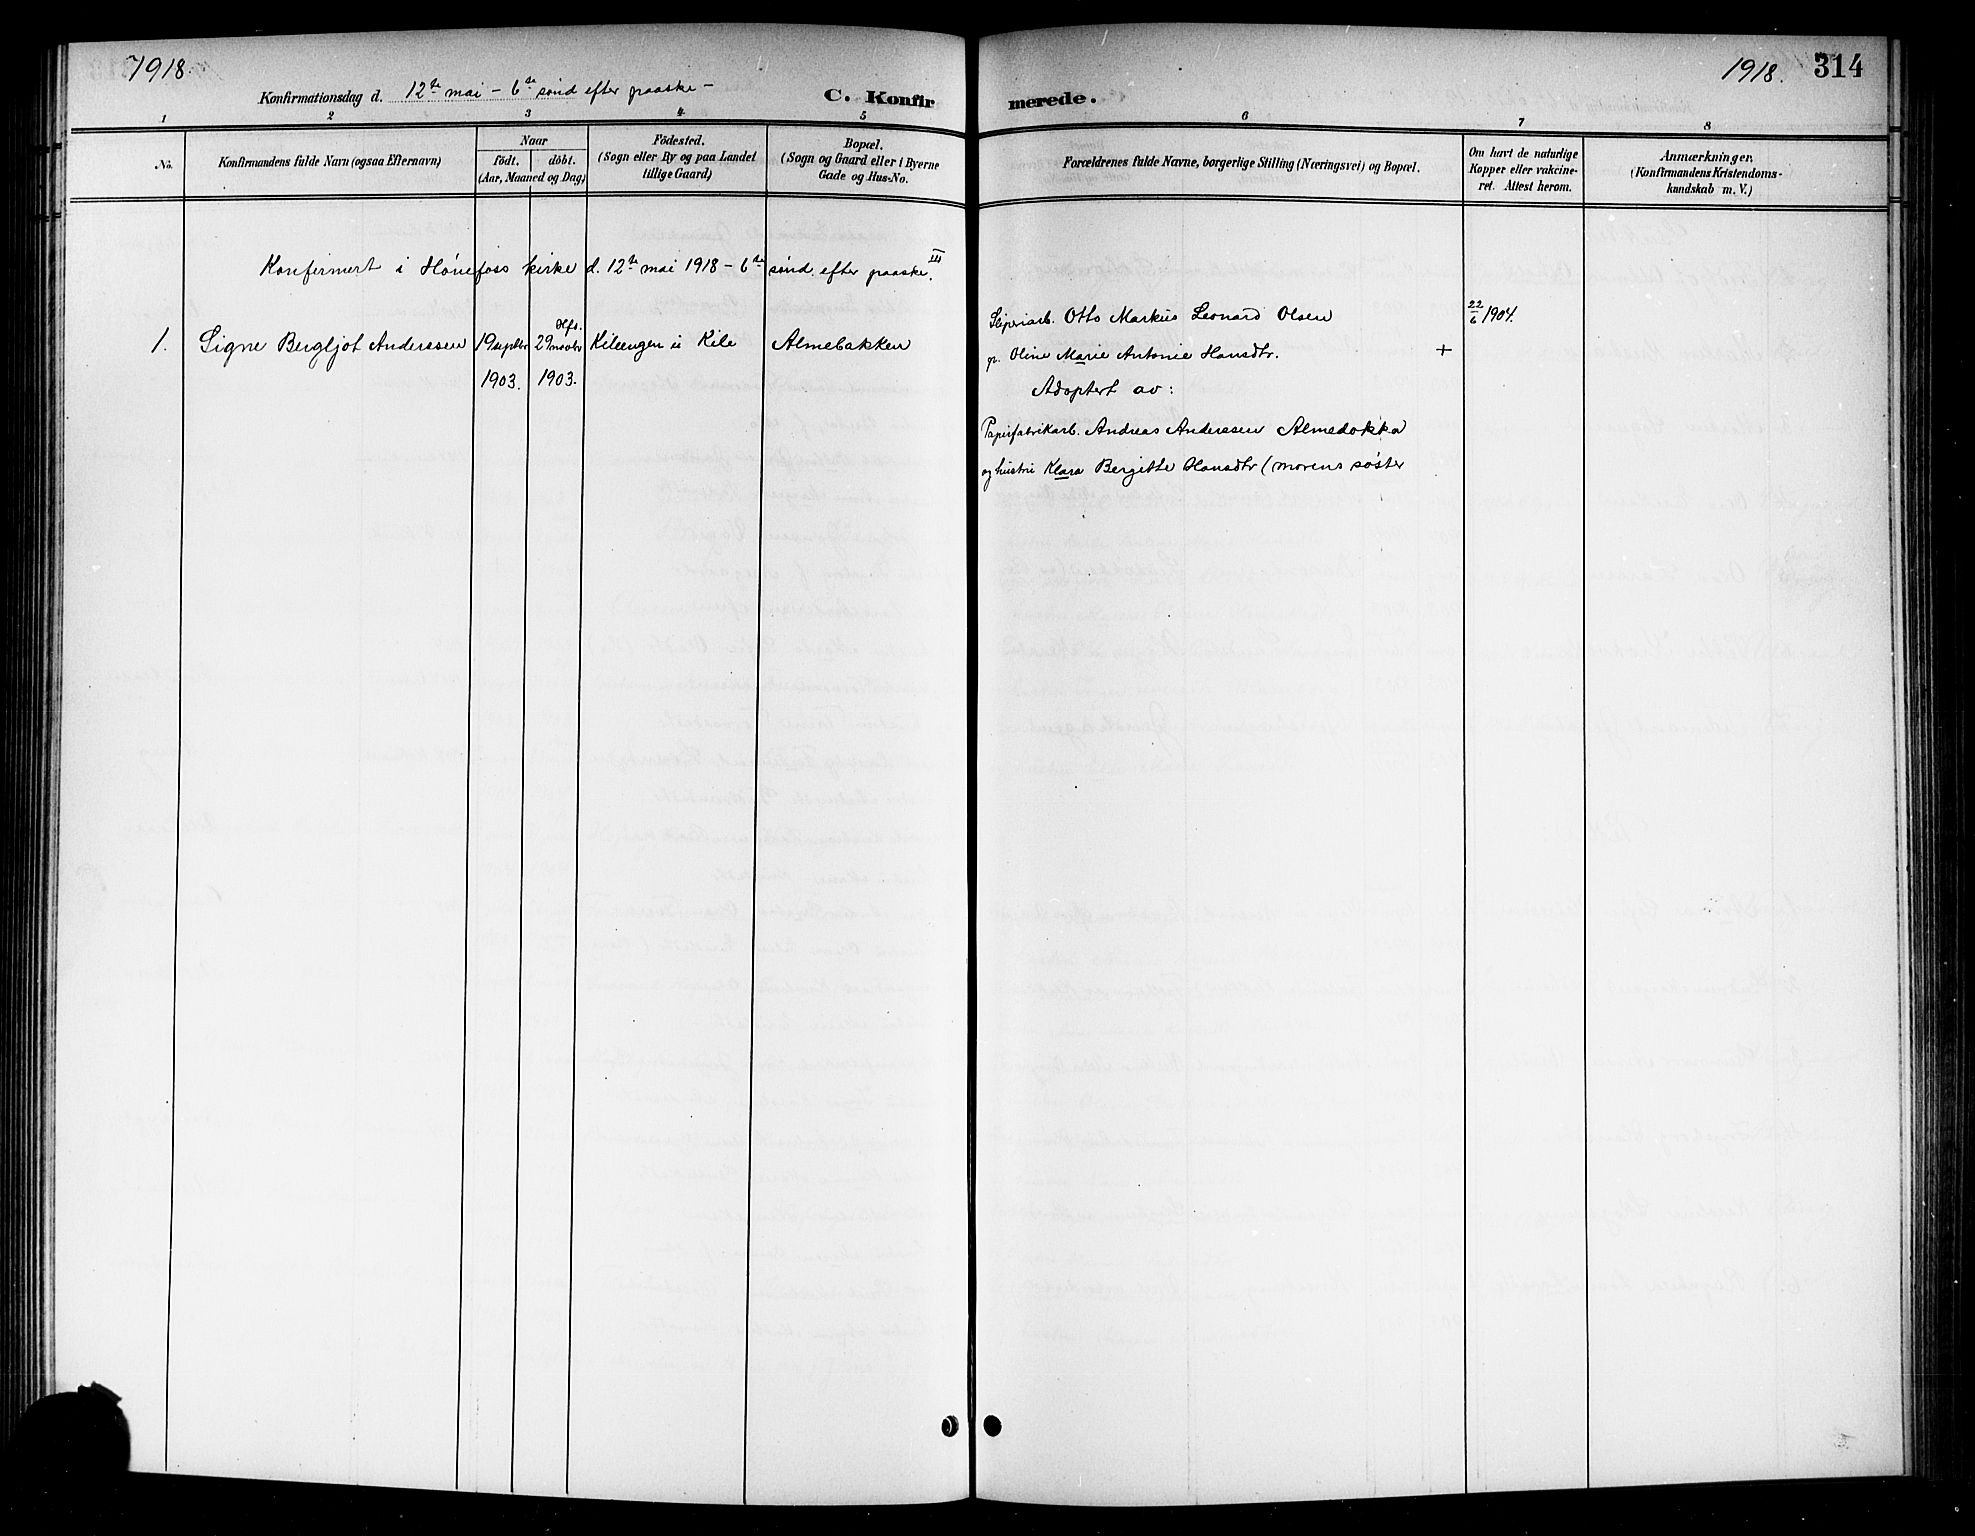 1918.
Konfirmationsdag d. 12te mai – 6te sønd efter paaske –
C. Konfir
1 2 3 4 5
No.
Konfirmandens fulde Navn (ogsaa Efternavn)
Naar
födt. döbt.
(Aar, Maaned og Dag)
Födested.
(Sogn eller By og paa Landet
tillige Gaard)
Bopæl.
(Sogn og Gaard eller i Byerne
Gade og Hus-No.
Konfirmert i Hönefoss kirke d. 12te mai 1918 – 6te sønd. efter paaske. III
Hfs.
1. Signe Bergljot Anderssen 19 septbr 29 novbr Kileengen u Kile Almebakken
1903. 1903.
1918. 314
merede.
6 7 8
Forældrenes fulde Navne, borgerlige Stilling (Næringsvei) og Bopæl.
Om havt de naturlige
Kopper eller vakcine-
ret. Attest herom.
Anmærkninger.
(Konfirmandens Kristendoms-
kundskab m. V.)
Sliperiarb. Otto Markus Leonard Olsen 22/6 1904.
p. Oline Marie Antonie Hansdtr. +
Adoptert av:
Papirfabrikarb. Andreas Anderssen Almedokka
og hustru Klara Bergitte Hansdtr (morens søster